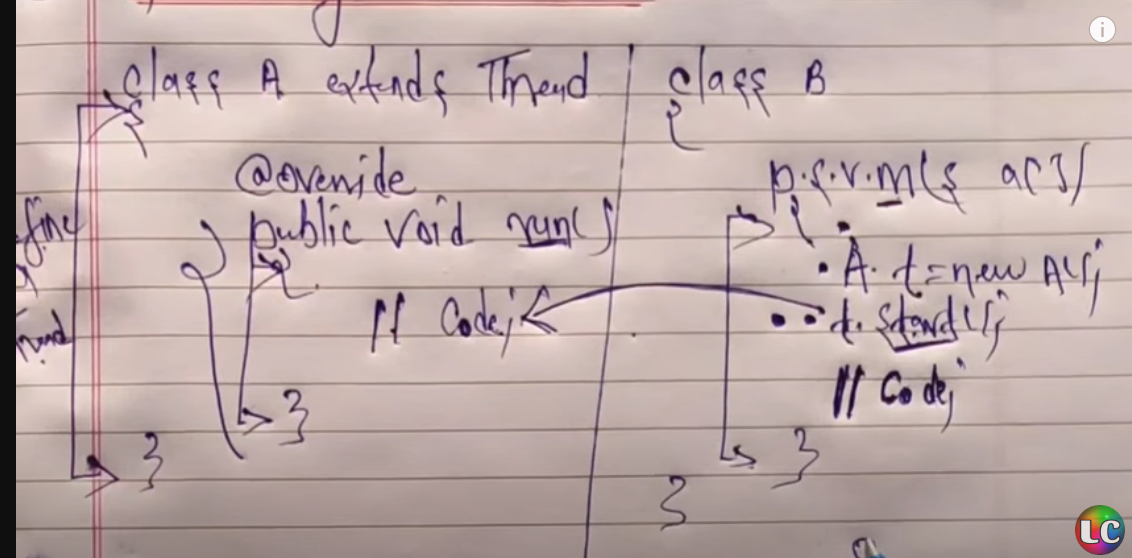 class A extends Thread
{
@override
public void run()
{
// Code;
}
}
class B
{
p.s.v.m(s a[])
{
A. t=new A();
t. start();
// Code;
}
}
LC